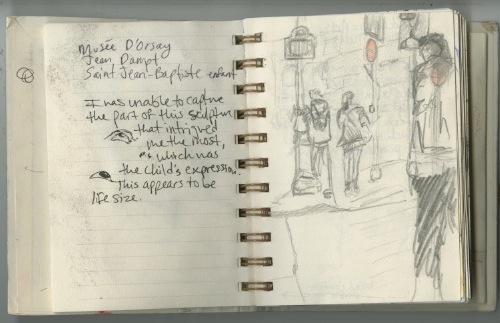 Musée D'Orsay
Jean Dampt
Saint Jean-Baptiste enfant
I was unable to capture
the part of this sculptur
that intrigued
me the most,
which was
the child's expression.
This appears to be
life size.